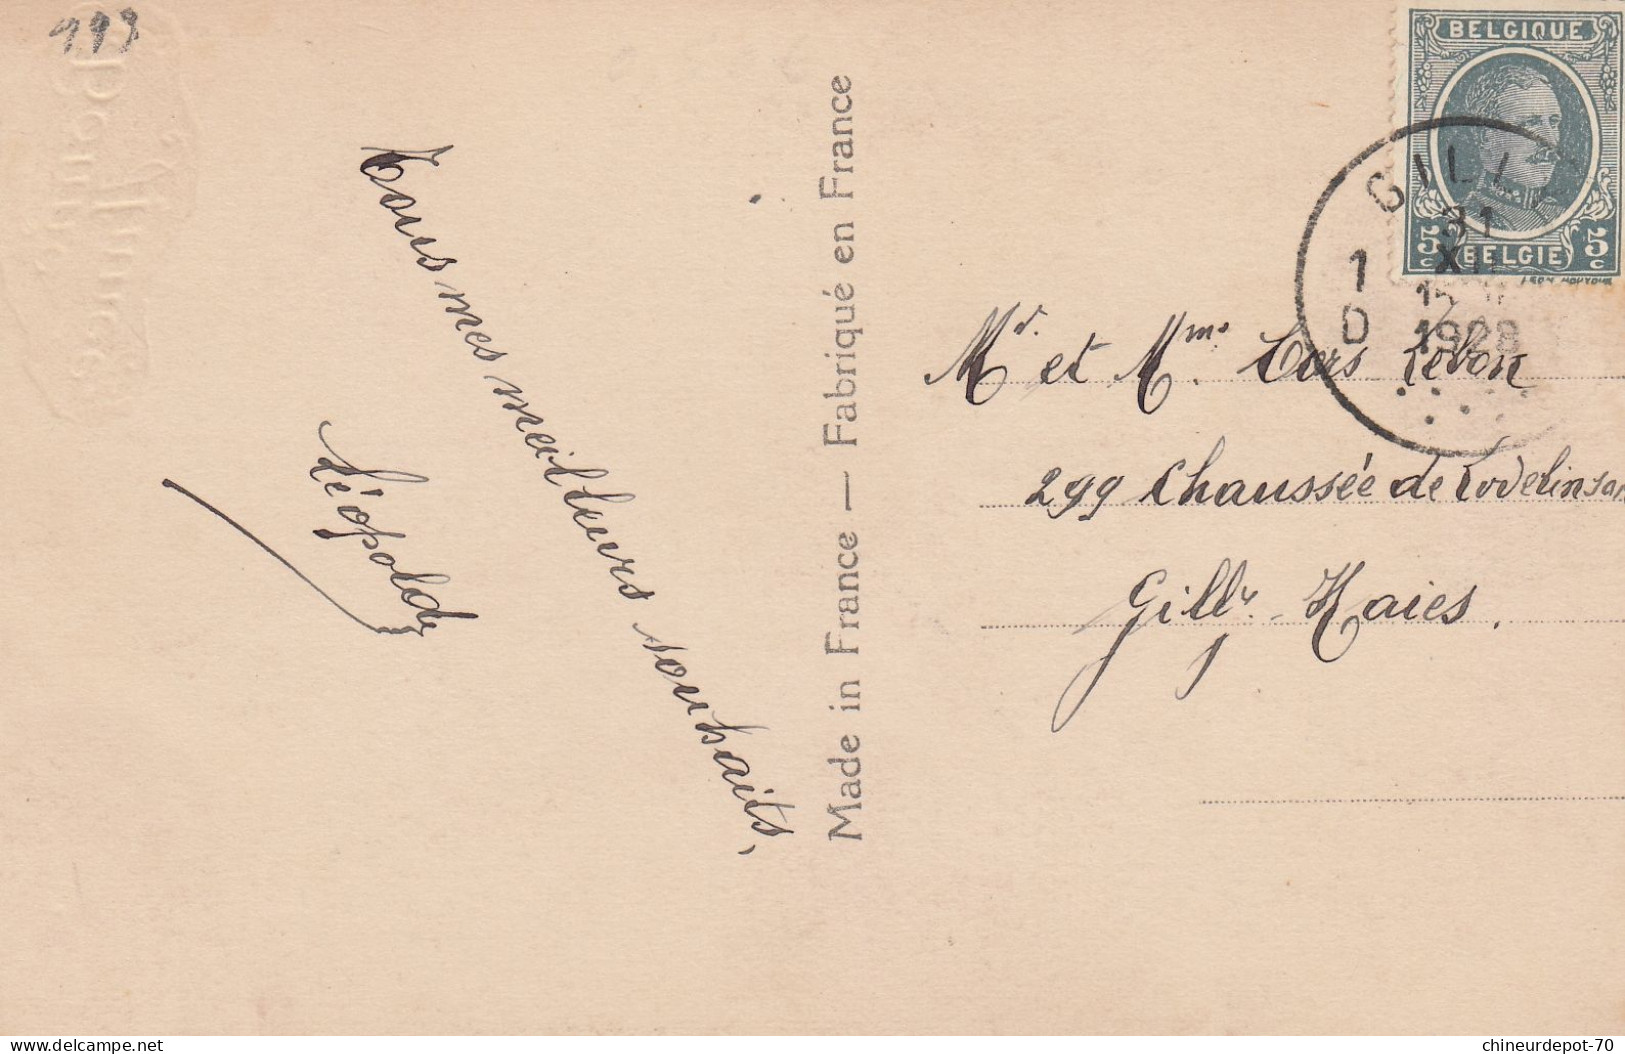 193
Tous mes meilleurs souhaits,
Léopold
Made in France — Fabriqué en France
BELGIQUE
5 c BELGIE 5 c
GILLY
31
XII
1928
1
D
Mr. et Mme. Cors Lebon
299 Chaussée de Lodelinsart
Gilly. Haies.
chineurdepot-70